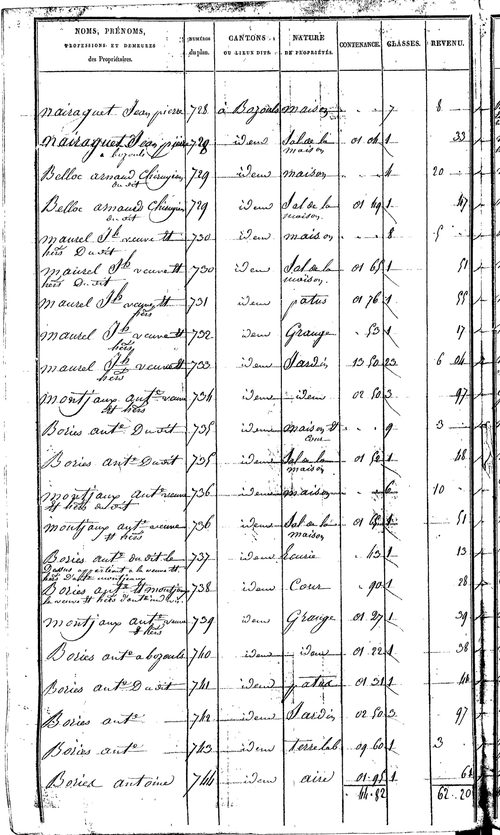 NOMS, PRÉNOMS, PROFESSIONS ET DEMEURES des Propriétaires. NUMÉROS du plan. CANTONS OU LIEUX DITS. NATURE DE PROPRIÉTÉS. CONTENANCE. CLASSES. REVENU.
Nairaguet Jean pierre 728 à Bozouls maison . . 7 8 .
Nairaguet Jean pierre à bozouls 728 idem Sol de la maison 01 04 1 . 33
Belloc arnaud Chirurgien du dit 729 idem maison . . 4 20 .
Belloc arnaud Chirurgien du dit 729 idem Sol de la maison 01 49 1 . 47
maurel Jh veuve et hérs Du dit 730 idem maison . . 8 5 .
maurel Jh veuve et hérs Du dit 730 idem Sol de la maison 01 65 1 . 51
maurel Jh veuve et hérs 731 idem patus 01 76 1 . 55
maurel Jh veuve et hérs 732 idem Grange . 53 1 . 17
maurel Jh veuve et hérs 733 idem Jardin 13 50 23 6 04
montjaux ante veuve et hérs 734 idem idem 02 50 3 . 97
Bories ante Du dit 735 idem maison et cour . . 9 3 .
Bories ante Du dit 735 idem Sol de la maison 01 52 1 . 48
montjaux ante veuve et hérs du dit 736 idem maison . . 6 10 .
montjaux ante veuve et hérs 736 idem Sol de la maison 01 65 1 . 51
Bories ante du dit le Dessus appartient à la veuve et hérs d'ante montjaux 737 idem Ecurie . 43 1 . 13
Bories ante et montjaux la veuve et hérs d'ante indivis 738 idem Cour . 90 1 . 28
montjaux ante veuve & hérs 739 idem Grange 01 27 1 . 39
Bories ante a bozouls 740 idem idem 01 22 1 . 38
Bories ante Du dit 741 idem patus 01 31 1 . 44
Bories ante 742 idem Jardin 02 50 3 . 97
Bories ante 743 idem terre lab 09 60 1 3 .
Bories antoine 744 idem aire 01 95 1 . 61
44.82 62.20